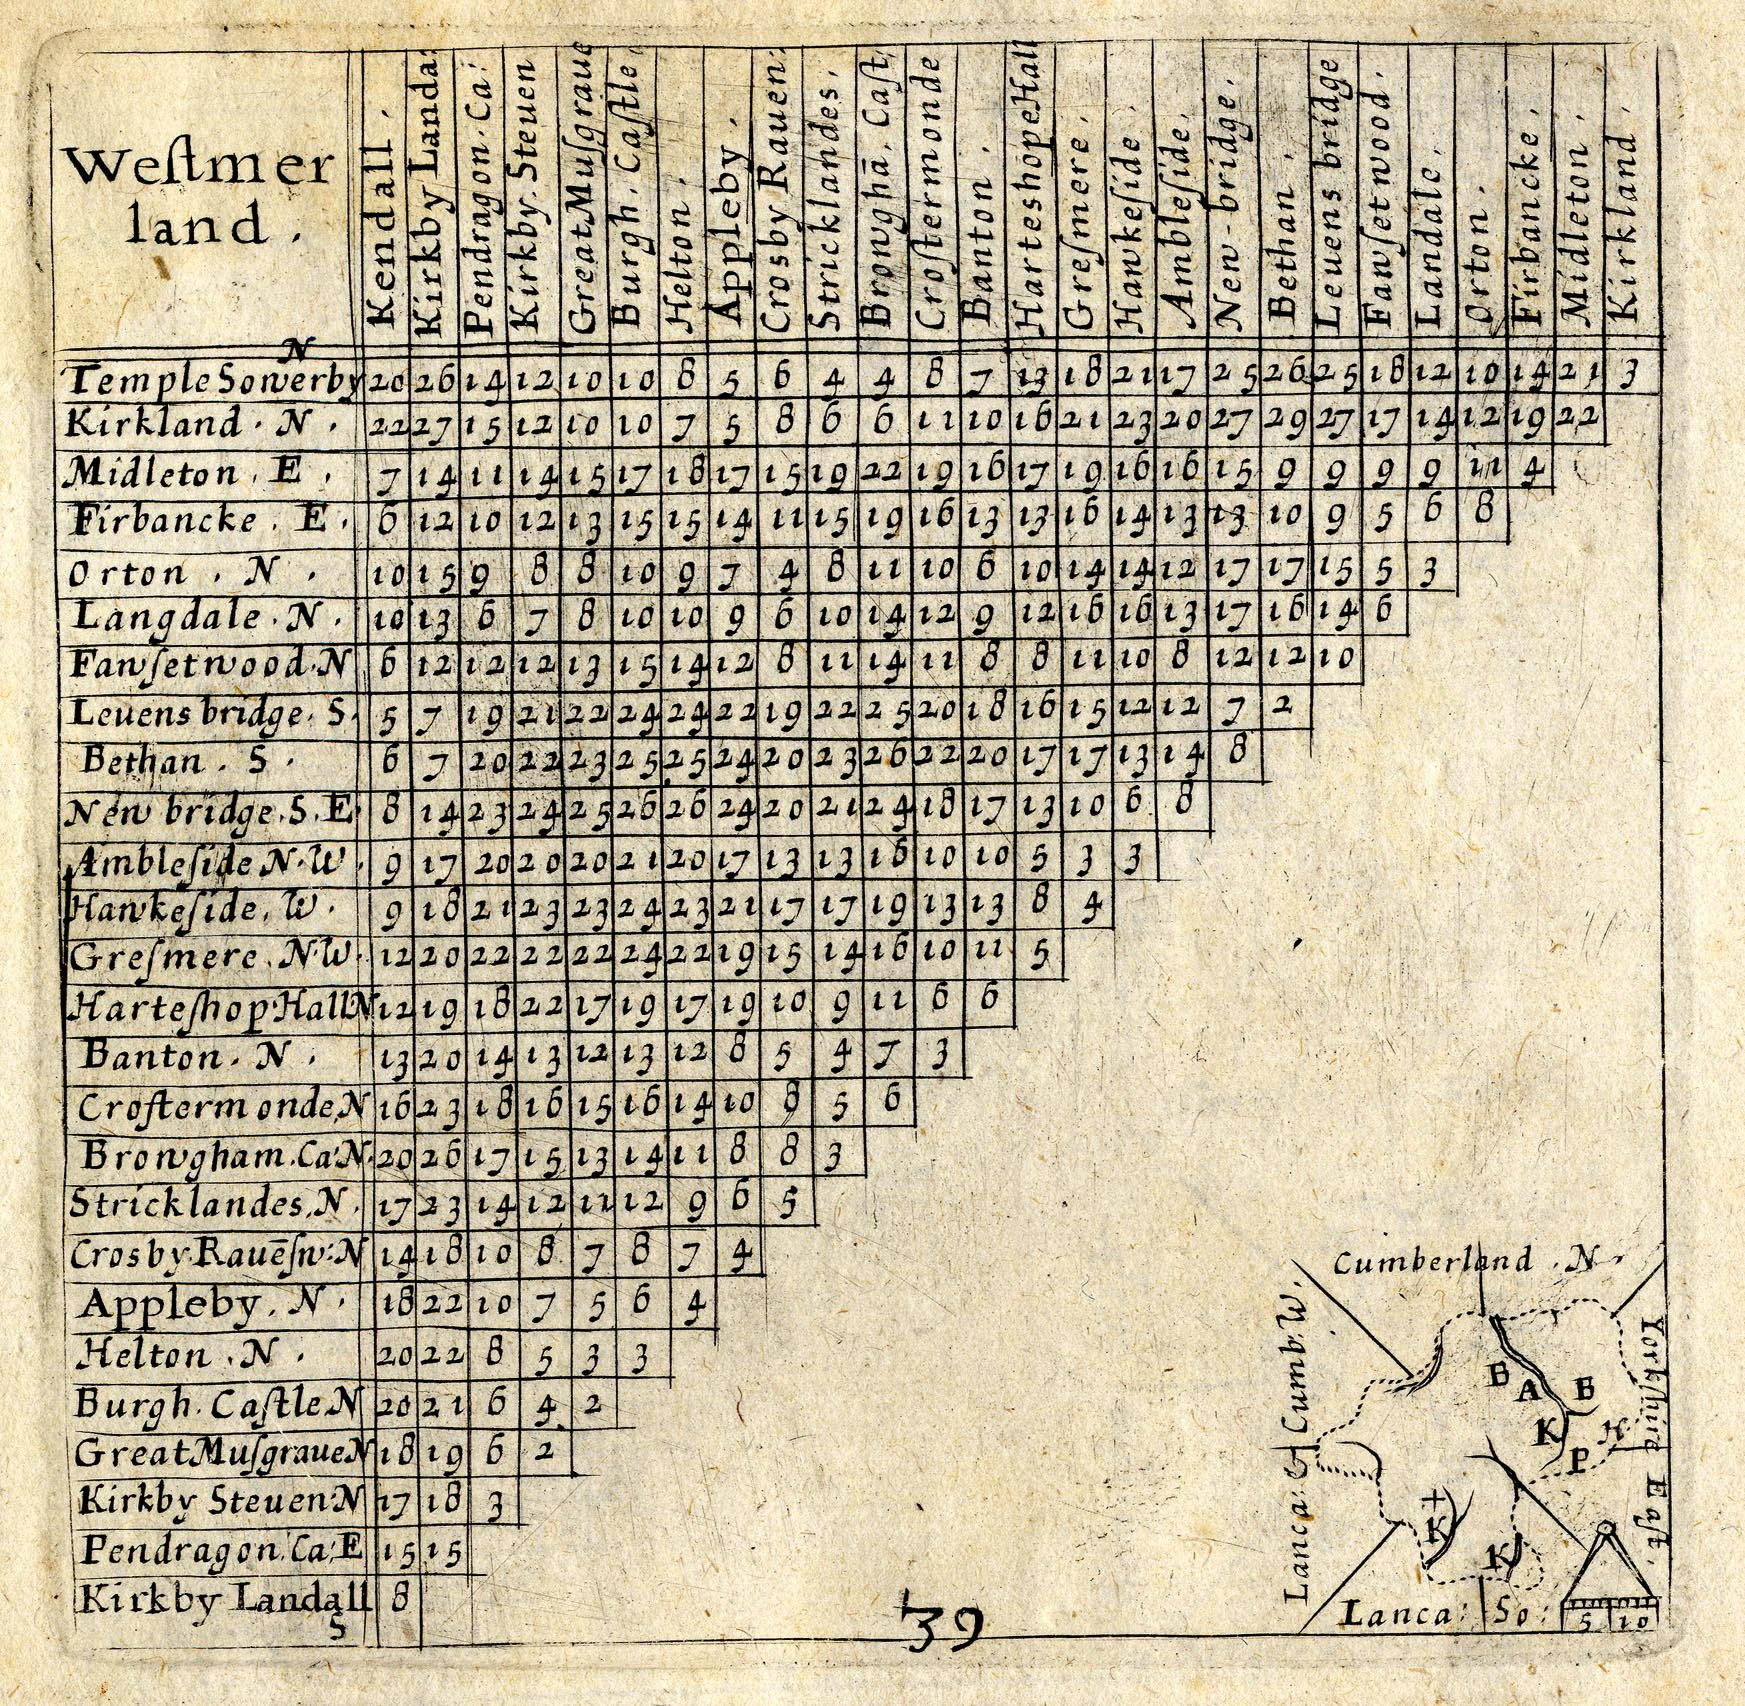 Weſtmer
land .
Kendall .
Kirkby Landa:
Pendragon . Ca:
Kirkby . Steuen
Great Muſgraue
Burgh . Caſtle .
Helton .
Appleby .
Crosby Rauen.
Stricklandes .
Browghā . Caſt.
Croſtermonde
Banton .
Harteshope Hall
Greſmere .
Hawkeſide .
Ambleſide .
New-bridge .
Bethan .
Leuens bridge
Fawſetwood .
Landale .
Orton .
Firbancke .
Midleton .
Kirkland .
N
Temple Sowerby 20 26 14 12 10 10 8 5 6 4 4 8 7 13 18 21 17 25 26 25 18 12 10 14 21 3
Kirkland . N . 22 27 15 12 10 10 7 5 8 6 6 11 10 16 21 23 20 27 29 27 17 14 12 19 22
Midleton . E . 7 14 11 14 15 17 18 17 15 19 22 19 16 17 19 16 16 15 9 9 9 9 11 4
Firbancke . E . 6 12 10 12 13 15 15 14 11 15 19 16 13 13 16 14 13 13 10 9 5 6 8
Orton . N . 10 15 9 8 8 10 9 7 4 8 11 10 6 10 14 14 12 17 17 15 5 3
Langdale . N . 10 13 6 7 8 10 10 9 6 10 14 12 9 12 16 16 13 17 16 14 6
Fawſetwood . N 6 12 12 12 13 15 14 12 8 11 14 11 8 8 11 10 8 12 12 10
Leuens bridge . S . 5 7 19 21 22 24 24 22 19 22 25 20 18 16 15 12 12 7 2
Bethan . S . 6 7 20 22 23 25 25 24 20 23 26 22 20 17 17 13 14 8
New bridge . S . E 8 14 23 24 25 26 26 24 20 21 24 18 17 13 10 6 8
Ambleſide N . W . 9 17 20 20 20 21 20 17 13 13 16 10 10 5 3 3
Hawkeſide . W . 9 18 21 23 23 24 23 21 17 17 19 13 13 8 4
Greſmere . N . W . 12 20 22 22 22 24 22 19 15 14 16 10 11 5
Harteſhop Hall N 12 19 18 22 17 19 17 19 10 9 11 6 6
Banton . N . 13 20 14 13 12 13 12 8 5 4 7 3
Croſtermonde N 16 23 18 16 15 16 14 10 8 5 6
Browgham . Ca: N . 20 26 17 15 13 14 11 8 8 3
Stricklandes . N . 17 23 14 12 11 12 9 6 5
Crosby . Rauēſw: N 14 18 10 8 7 8 7 4
Appleby . N . 18 22 10 7 5 6 4
Helton . N . 20 22 8 5 3 3
Burgh . Caſtle N 20 21 6 4 2
Great Muſgraue N 18 19 6 2
Kirkby Steuen: N 17 18 3
Pendragon . Ca: E 15 15
Kirkby Landall 8
S
39
Cumberland . N .
Lanca: & Cumb: W .
Yorkſhire Eaſt .
B A B
K H
P
K
K
Lanca: So:
5 10